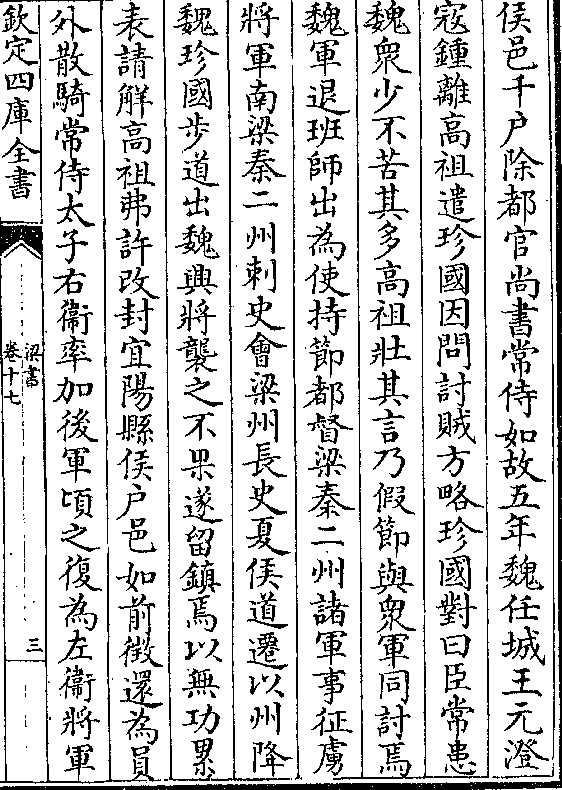 侯邑千户除都官尚書常侍如故五年魏任城王元澄
寇鍾離高祖遣珍國因問討賊方略珍國對曰臣常患
魏衆少不苦其多高祖壯其言乃假節與衆軍同討焉
魏軍退班師出為使持節都督梁秦二州諸軍事征虜
將軍南梁秦二州刺史會梁州長史夏侯道遷以州降
魏珍國步道出魏興將襲之不果遂留鎮焉以無功累
表請解高祖弗許改封宜陽縣侯户邑如前徵還為員
外散騎常侍太子右衞率加後軍頃之復為左衞將軍
欽定四庫全書
梁書
卷十七
三